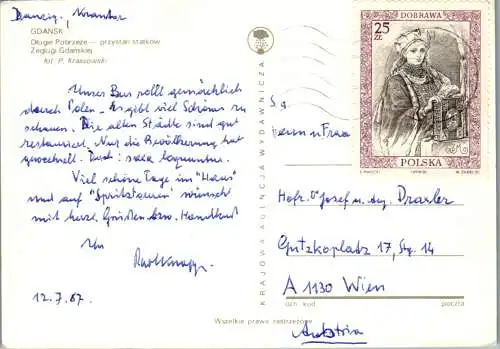 Danzig,
GDAŃSK
Długie Pobrzeże — przystań statków
Żeglugi Gdańskiej
fot. P. Krassowski
Unser Bus rollt gemächlich
durch Polen. Es gibt viel Schönes zu
schauen. Die alten Städte sind gut
restauriert. Nur die Bevölkerung hat
gewechselt. Doch: saxa loquuntur.
Viel schöne Tage im "Haus"
und auf "Spritztouren" wünscht
mit herzl. Grüßen bzw. Handkuß
Ihr
12.7.87
KRAJOWA AGENCJA WYDAWNICZA
DOBRAWA
25
ZŁ
POLSKA
S.g.
Herrn u Frau
Hofr. Dr Josef u. Aug. Draxler
Gutzkoplatz 17, Stg. 14
A 1130 Wien
ulica kod
poczta
Austria
Wszelkie prawa zastrzeżone